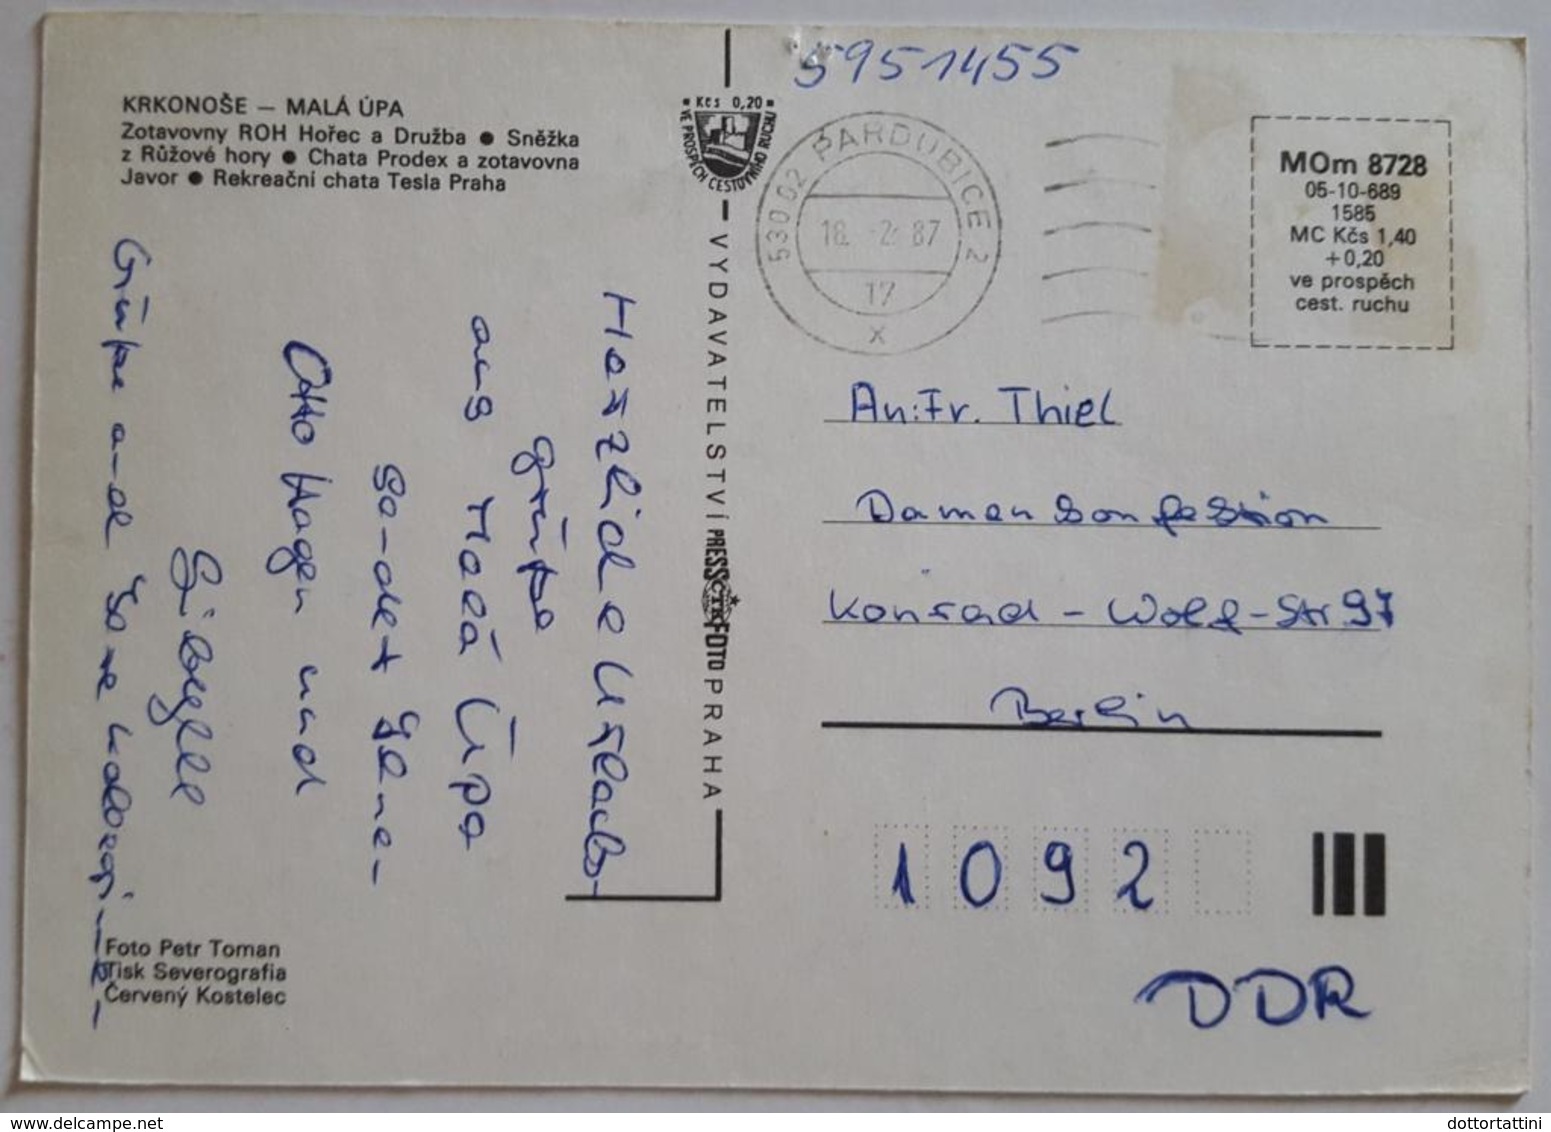 5951455
KRKONOŠE — MALÁ ÚPA
Zotavovny ROH Hořec a Družba ● Sněžka
z Růžové hory ● Chata Prodex a zotavovna
Javor ● Rekreační chata Tesla Praha
Kčs 0,20
VE PROSPĚCH CESTOVNÍHO RUCHU
530 02 PARDUBICE 2
18. -2. 87
17
x
MOm 8728
05-10-689
1585
MC Kčs 1,40
+0,20
ve prospěch
cest. ruchu
Herzliche Urlaubs-
grüße
aus Malá Úpa
sendet Ihnen
Otto Hagen und
Sibylle
Grüße and Ihre Kolleginnen
VYDAVATELSTVÍ PRESSFOTO PRAHA
An: Fr. Thiel
Damenkonfektion
Konrad-Wolf-Str. 97
Berlin
1092
DDR
Foto Petr Toman
Tisk Severografia
Červený Kostelec
dottortattini